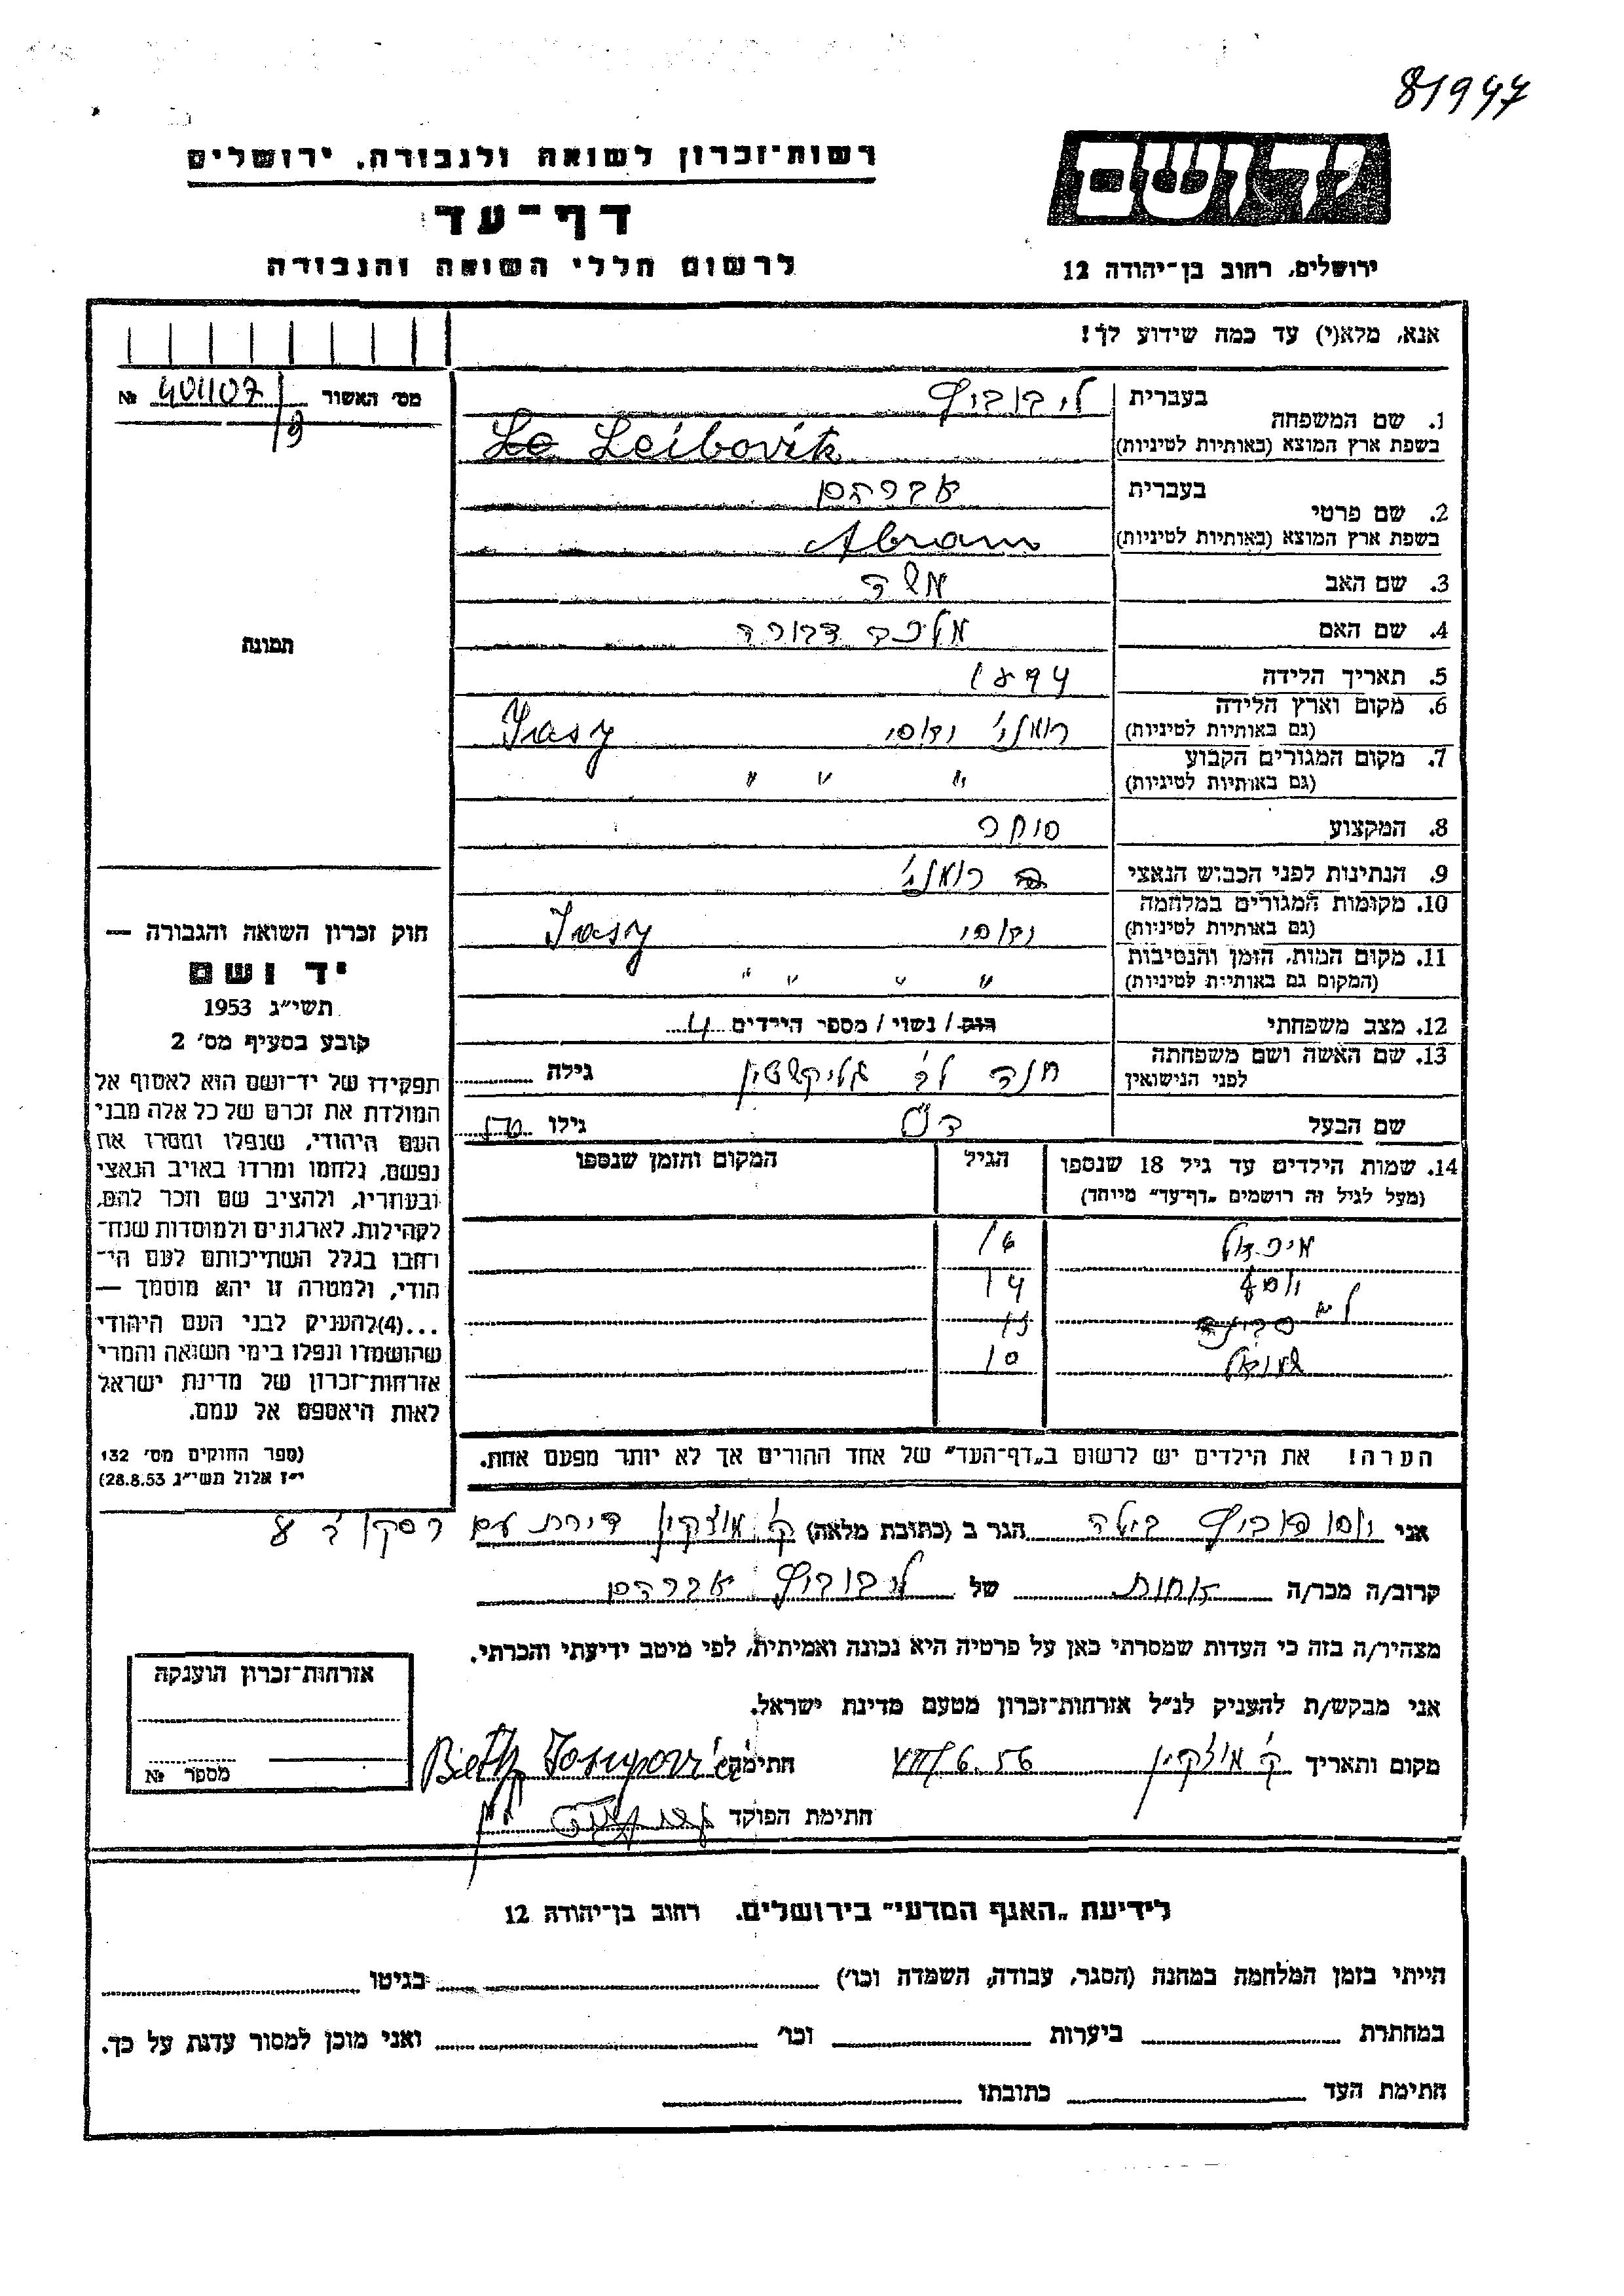 81947
רשות־זכרון לשואה ולגבורה, ירושלים
דף־עד
לרשום חללי השואה והגבורה
יד ושם
ירושלים, רחוב בן־יהודה 12
אנא, מלא(י) עד כמה שידוע לך!
מס׳ האשור 401107/ №
1. שם המשפחה
בעברית ליבוביץ
בשפת ארץ המוצא (באותיות לטיניות) Le Leibovik
2. שם פרטי
בעברית אברהם
בשפת ארץ המוצא (באותיות לטיניות) Abram
3. שם האב משה
4. שם האם מלכה דבורה
5. תאריך הלידה 1894
6. מקום וארץ הלידה
(גם באותיות לטיניות) רומני׳ יאסי Jasy
7. מקום המגורים הקבוע
(גם באותיות לטיניות) " " "
8. המקצוע סוחר
9. הנתינות לפני הכבוש הנאצי רומני׳
10. מקומות המגורים במלחמה
(גם באותיות לטיניות) יאסי Jasy
11. מקום המות, הזמן והנסיבות
(המקום גם באותיות לטיניות) " " " "
12. מצב משפחתי רוק / נשוי / מספר הילדים 4
13. שם האשה ושם משפחתה
לפני הנישואין חנה לב׳ גליקשטיין גילה
שם הבעל הנ״ל גילו 50
14. שמות הילדים עד גיל 18 שנספו
(מעל לגיל זה רושמים „דף־עד״ מיוחד)
הגיל
המקום והזמן שנספו
מיכאל 16
יוסף 14
13
שמואל 10
הערה! את הילדים יש לרשום ב„דף־העד״ של אחד ההורים אך לא יותר מפעם אחת.
תמונה
חוק זכרון השואה והגבורה —
יד ושם
תשי״ג 1953
קובע בסעיף מס׳ 2
תפקידו של יד־ושם הוא לאסוף אל
המולדת את זכרם של כל אלה מבני
העם היהודי, שנפלו ומסרו את
נפשם, נלחמו ומרדו באויב הנאצי
ובעוזריו, ולהציב שם וזכר להם,
לקהילות, לארגונים ולמוסדות שנח־
רחבו בגלל השתייכותם לעם הי־
הודי, ולמטרה זו יהא מוסמך —
...(4) להעניק לבני העם היהודי
שהושמדו ונפלו בימי השואה והמרי
אזרחות־זכרון של מדינת ישראל
לאות היאספם אל עמם.
(ספר החוקים מס׳ 132
י״ז אלול תשי״ג 28.8.53)
אני יוסופוביץ בילה הגר ב (כתובת מלאה) ק׳ מוצקין דירת עם רסקו ג׳ 8
קרוב/ה מכר/ה אחות של ליבוביץ אברהם
מצהיר/ה בזה כי העדות שמסרתי כאן על פרטיה היא נכונה ואמיתית, לפי מיטב ידיעתי והכרתי.
אני מבקש/ת להעניק לנ״ל אזרחות־זכרון מטעם מדינת ישראל.
מקום ותאריך ק׳ מוצקין 6.56 חתימה
חתימת הפוקד
אזרחות־זכרון הוענקה
מספר №
לידיעת „האגף המדעי״ בירושלים. רחוב בן־יהודה 12
הייתי בזמן המלחמה במחנה (הסגר, עבודה, השמדה וכו׳) בגיטו
במחתרת ביערות וכו׳ ואני מוכן למסור עדות על כך.
חתימת העד כתובתו